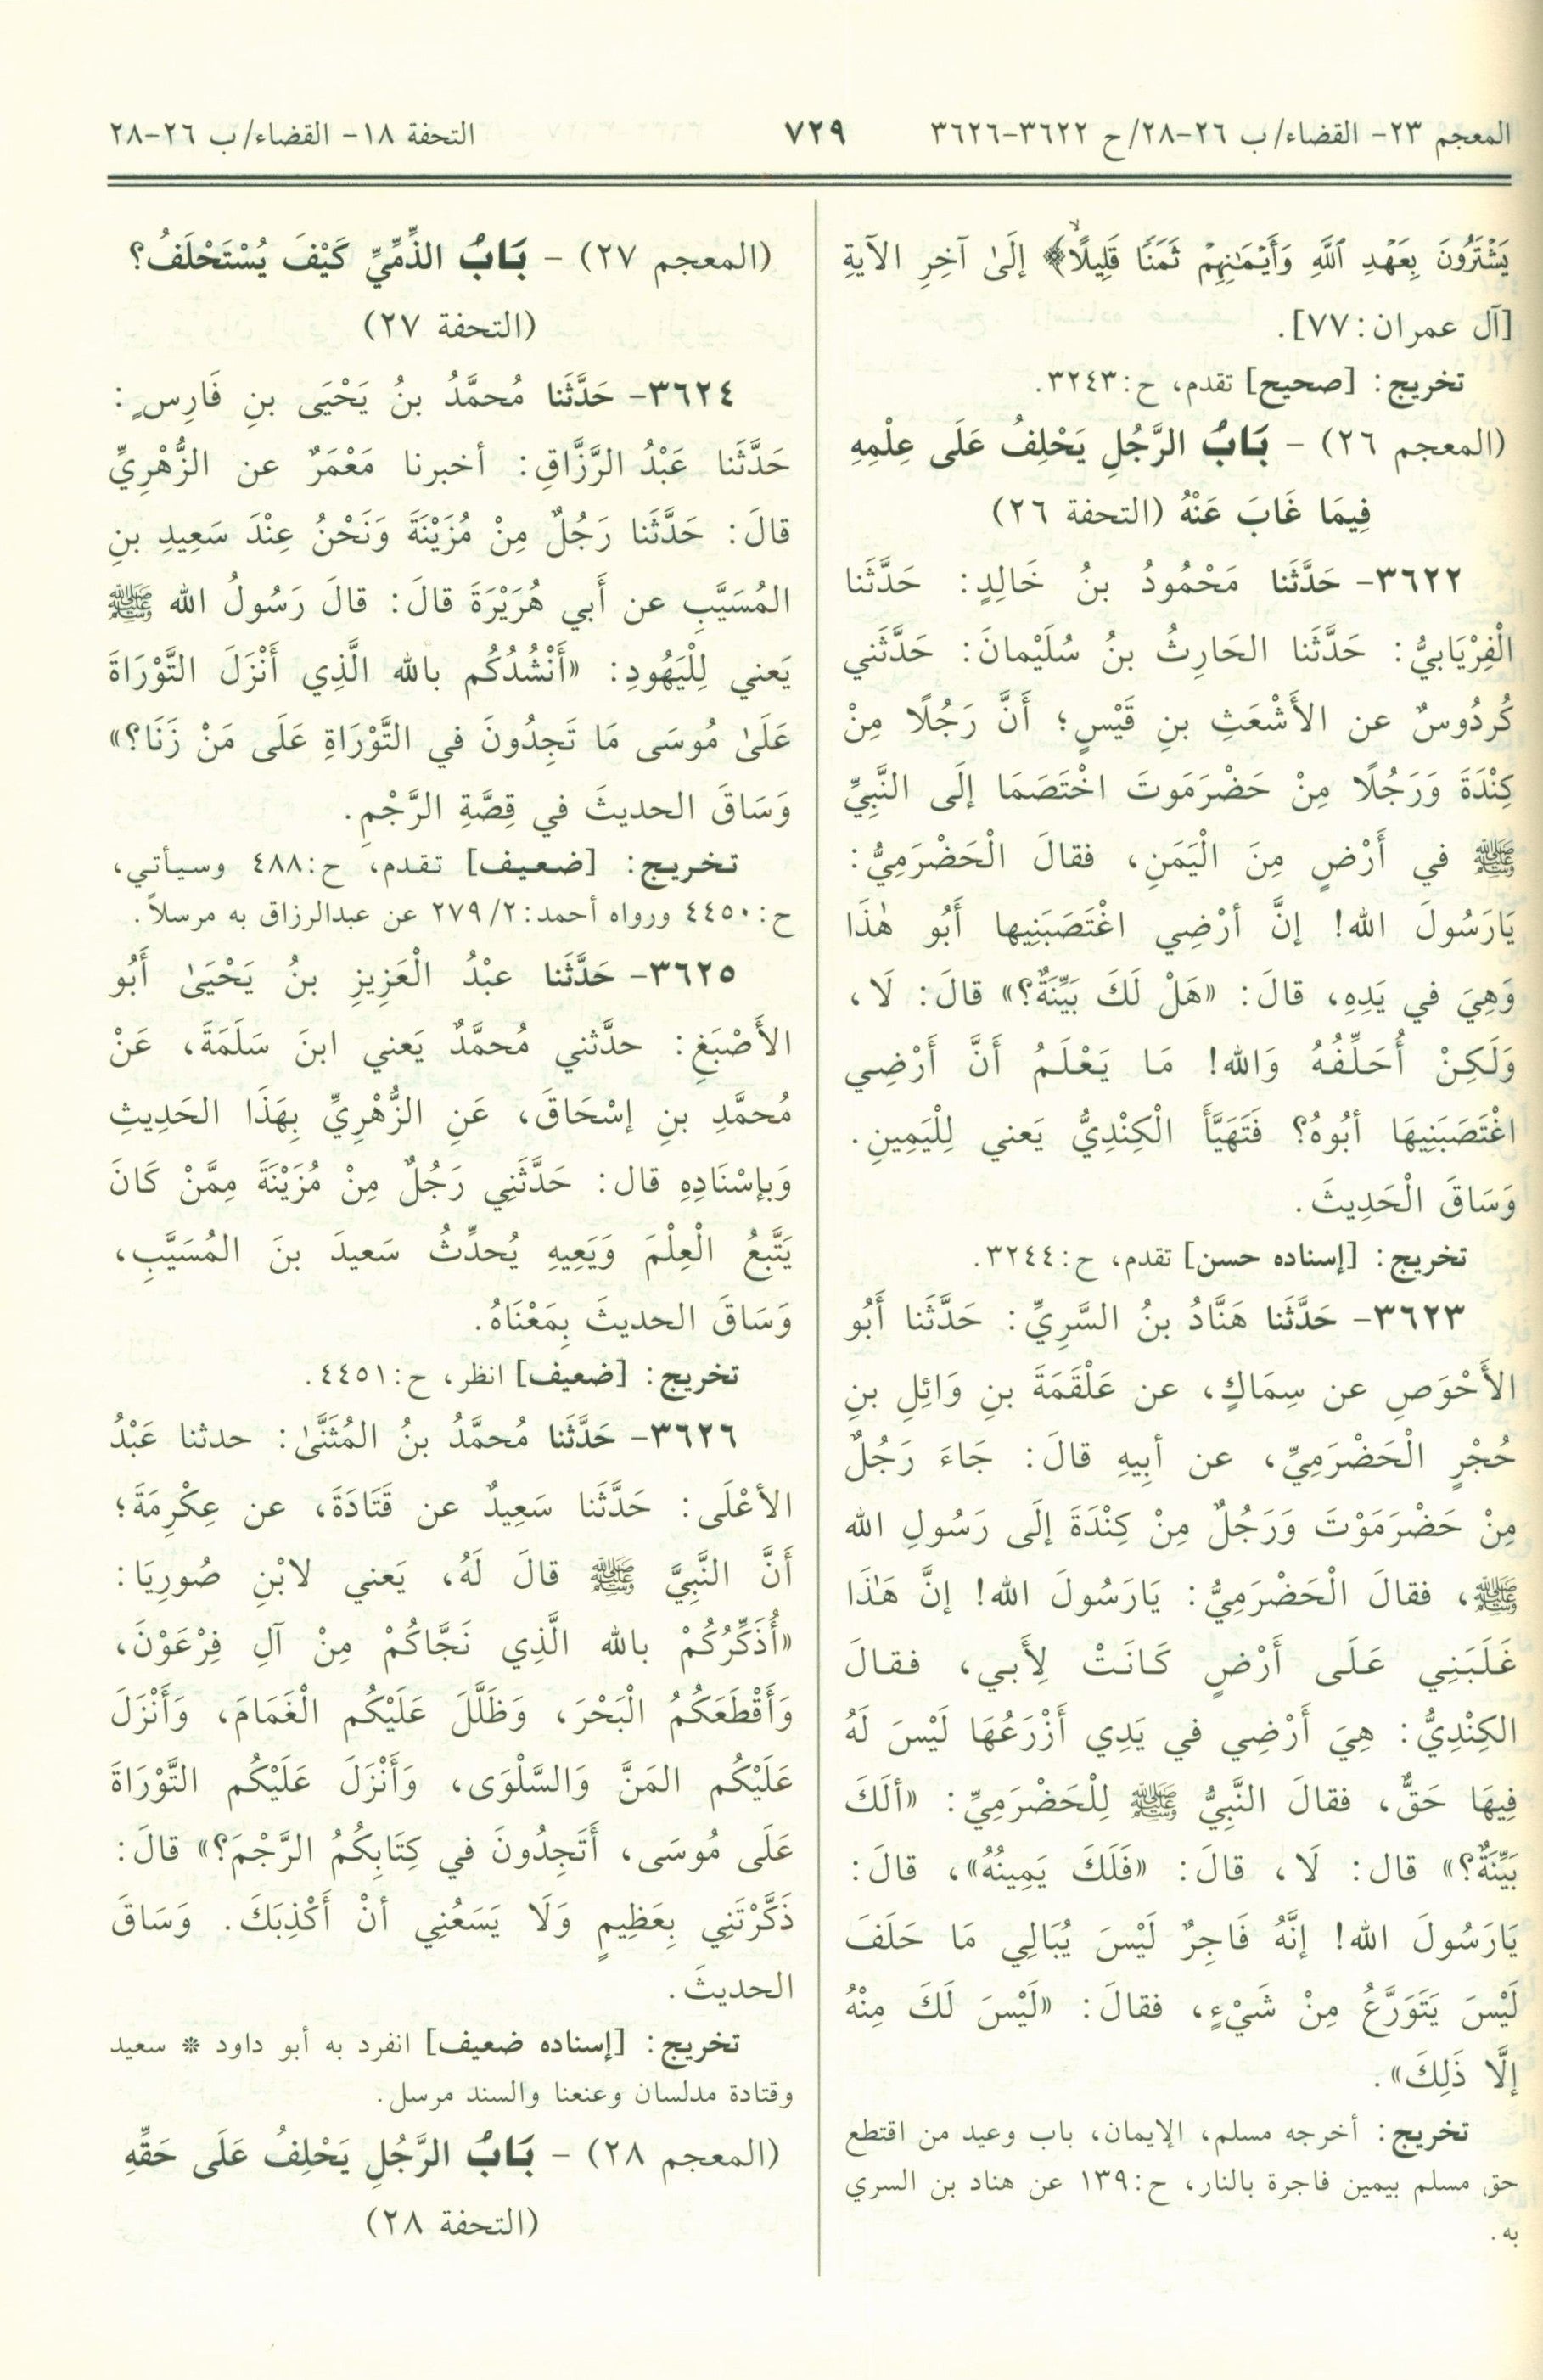 المعجم ٢٣- القضاء/ ب ٢٦-٢٨/ ح ٣٦٢٢-٣٦٢٦
٧٢٩
التحفة ١٨- القضاء/ ب ٢٦-٢٨
يَشْتَرُونَ بِعَهْدِ ٱللَّهِ وَأَيْمَٰنِهِمْ ثَمَنًا قَلِيلًا﴾ إلَىٰ آخِرِ الآيةِ
[آل عمران: ٧٧].
تخريج: [صحيح] تقدم، ح: ٣٢٤٣.
(المعجم ٢٦) - بَابُ الرَّجُلِ يَحْلِفُ عَلَى عِلْمِهِ
فِيمَا غَابَ عَنْهُ (التحفة ٢٦)
٣٦٢٢- حَدَّثَنا مَحْمُودُ بنُ خَالِدٍ: حَدَّثَنا
الْفِرْيَابيُّ: حَدَّثَنا الحَارِثُ بنُ سُلَيْمانَ: حَدَّثَني
كُردُوسٌ عن الأَشْعَثِ بنِ قَيْسٍ؛ أَنَّ رَجُلًا مِنْ
كِنْدَةَ وَرَجُلًا مِنْ حَضْرَمَوتَ اخْتَصَمَا إلَى النَّبِيِّ
ﷺ في أَرْضٍ مِنَ الْيَمَنِ، فقالَ الْحَضْرَمِيُّ:
يَارَسُولَ الله! إنَّ أرْضِي اغْتَصَبَنِيها أَبُو هٰذَا
وَهِيَ في يَدِهِ، قالَ: «هَلْ لَكَ بَيِّنَةٌ؟» قالَ: لَا،
وَلَكِنْ أُحَلِّفُهُ وَالله! مَا يَعْلَمُ أَنَّ أَرْضِي
اغْتَصَبَنِيهَا أبُوهُ؟ فَتَهَيَّأَ الْكِنْدِيُّ يَعني لِلْيَمِينِ.
وَسَاقَ الْحَدِيثَ.
تخريج: [إسناده حسن] تقدم، ح: ٣٢٤٤.
٣٦٢٣- حَدَّثَنا هَنَّادُ بنُ السَّرِيِّ: حَدَّثَنا أَبُو
الأَحْوَصِ عن سِمَاكٍ، عن عَلْقَمَةَ بنِ وَائِلِ بنِ
حُجْرٍ الْحَضْرَمِيِّ، عن أبِيهِ قالَ: جَاءَ رَجُلٌ
مِنْ حَضْرَمَوْتَ وَرَجُلٌ مِنْ كِنْدَةَ إلَى رَسُولِ الله
ﷺ، فقالَ الْحَضْرَمِيُّ: يَارَسُولَ الله! إنَّ هَذَا
غَلَبَنِي عَلَى أَرْضٍ كَانَتْ لِأَبي، فقالَ
الكِنْدِيُّ: هِيَ أَرْضِي في يَدِي أَزْرَعُهَا لَيْسَ لَهُ
فِيهَا حَقٌّ، فقالَ النَّبِيُّ ﷺ لِلْحَضْرَمِيِّ: «ألَكَ
بَيِّنَةٌ؟» قال: لَا، قالَ: «فَلَكَ يَمِينُهُ»، قالَ:
يَارَسُولَ الله! إنَّهُ فَاجِرٌ لَيْسَ يُبَالِي مَا حَلَفَ
لَيْسَ يَتَوَرَّعُ مِنْ شَيْءٍ، فقالَ: «لَيْسَ لَكَ مِنْهُ
إلَّا ذَلِكَ».
تخريج: أخرجه مسلم، الإيمان، باب وعيد من اقتطع
حق مسلم بيمين فاجرة بالنار، ح: ١٣٩ عن هناد بن السري
به.
(المعجم ٢٧) - بَابُ الذِّمِّيِّ كَيْفَ يُسْتَحْلَفُ؟
(التحفة ٢٧)
٣٦٢٤- حَدَّثَنا مُحمَّدُ بنُ يَحْيَى بنِ فَارِسٍ:
حَدَّثَنا عَبْدُ الرَّزَّاقِ: أخبرنا مَعْمَرٌ عن الزُّهْرِيِّ
قالَ: حَدَّثَنا رَجُلٌ مِنْ مُزَيْنَةَ وَنَحْنُ عِنْدَ سَعِيدِ بنِ
المُسَيَّبِ عن أَبي هُرَيْرَةَ قالَ: قالَ رَسُولُ الله ﷺ
يَعني لِلْيَهُودِ: «أَنْشُدُكُم بالله الَّذِي أَنْزَلَ التَّوْرَاةَ
عَلَىٰ مُوسَى مَا تَجِدُونَ في التَّوْرَاةِ عَلَى مَنْ زَنَا؟»
وَسَاقَ الحديثَ في قِصَّةِ الرَّجْمِ.
تخريج: [ضعيف] تقدم، ح: ٤٨٨ وسيأتي،
ح: ٤٤٥٠ ورواه أحمد: ٢/ ٢٧٩ عن عبدالرزاق به مرسلاً.
٣٦٢٥- حَدَّثَنا عبْدُ الْعَزِيزِ بنُ يَحْيَىٰ أَبُو
الأَصْبَغِ: حدَّثني مُحمَّدٌ يَعني ابنَ سَلَمَةَ، عَنْ
مُحمَّدِ بنِ إسْحَاقَ، عَنِ الزُّهْرِيِّ بِهَذَا الحَدِيثِ
وَبإسْنَادِهِ قال: حَدَّثَنِي رَجُلٌ مِنْ مُزَيْنَةَ مِمَّنْ كَانَ
يَتَّبِعُ الْعِلْمَ وَيَعِيهِ يُحدِّثُ سَعيدَ بنَ المُسَيَّبِ،
وَسَاقَ الحديثَ بِمَعْنَاهُ.
تخريج: [ضعيف] انظر، ح: ٤٤٥١.
٣٦٢٦- حَدَّثَنا مُحمَّدُ بنُ المُثَنَّىٰ: حدثنا عَبْدُ
الأعْلَى: حَدَّثَنا سَعِيدٌ عن قَتَادَةَ، عن عِكْرِمَةَ؛
أَنَّ النَّبِيَّ ﷺ قالَ لَهُ، يَعني لابْنِ صُورِيَا:
«أُذَكِّرُكُمْ بالله الَّذِي نَجَّاكُمْ مِنْ آلِ فِرْعَوْنَ،
وَأَقْطَعَكُمُ الْبَحْرَ، وَظَلَّلَ عَلَيْكُم الْغَمَامَ، وَأَنْزَلَ
عَلَيْكُم المَنَّ وَالسَّلْوَى، وَأَنْزَلَ عَلَيْكُم التَّوْرَاةَ
عَلَى مُوسَى، أَتَجِدُونَ في كِتَابِكُمُ الرَّجْمَ؟» قالَ:
ذَكَّرْتَنِي بِعَظِيمٍ وَلَا يَسَعُنِي أنْ أَكْذِبَكَ. وَسَاقَ
الحديثَ.
تخريج: [إسناده ضعيف] انفرد به أبو داود * سعيد
وقتادة مدلسان وعنعنا والسند مرسل.
(المعجم ٢٨) - بَابُ الرَّجُلِ يَحْلِفُ عَلَى حَقِّهِ
(التحفة ٢٨)